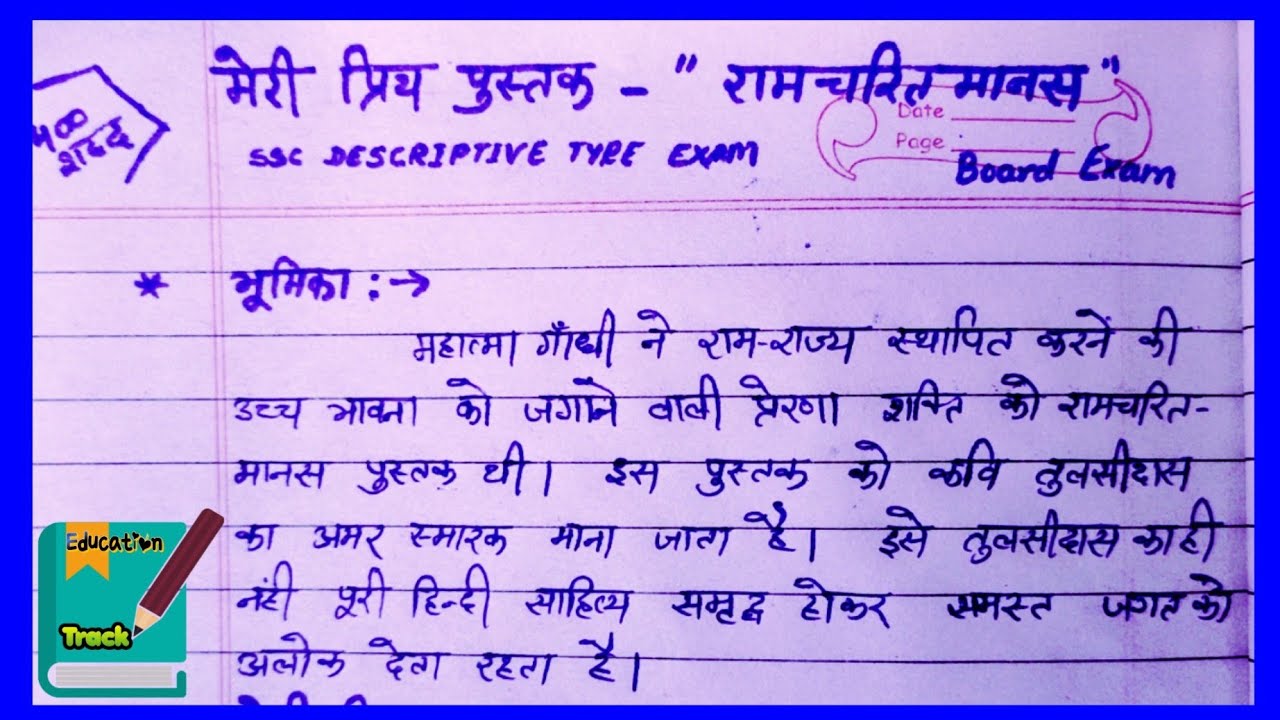 मेरी प्रिय पुस्तक - "रामचरितमानस"
400 शब्द
Date
Page
SSC DESCRIPTIVE TYPE EXAM
Board Exam
* भूमिका :→
महात्मा गाँधी ने राम-राज्य स्थापित करनें की
उच्च भावना को जगाने वाली प्रेरणा शक्ति को रामचरित-
मानस पुस्तक थी। इस पुस्तक को कवि तुलसीदास
का अमर स्मारक माना जाता है। इसे तुलसीदास का ही
नंही पूरी हिन्दी साहित्य समृद्ध होकर समस्त जगत को
अलोक देता रहता है।
Education
Track